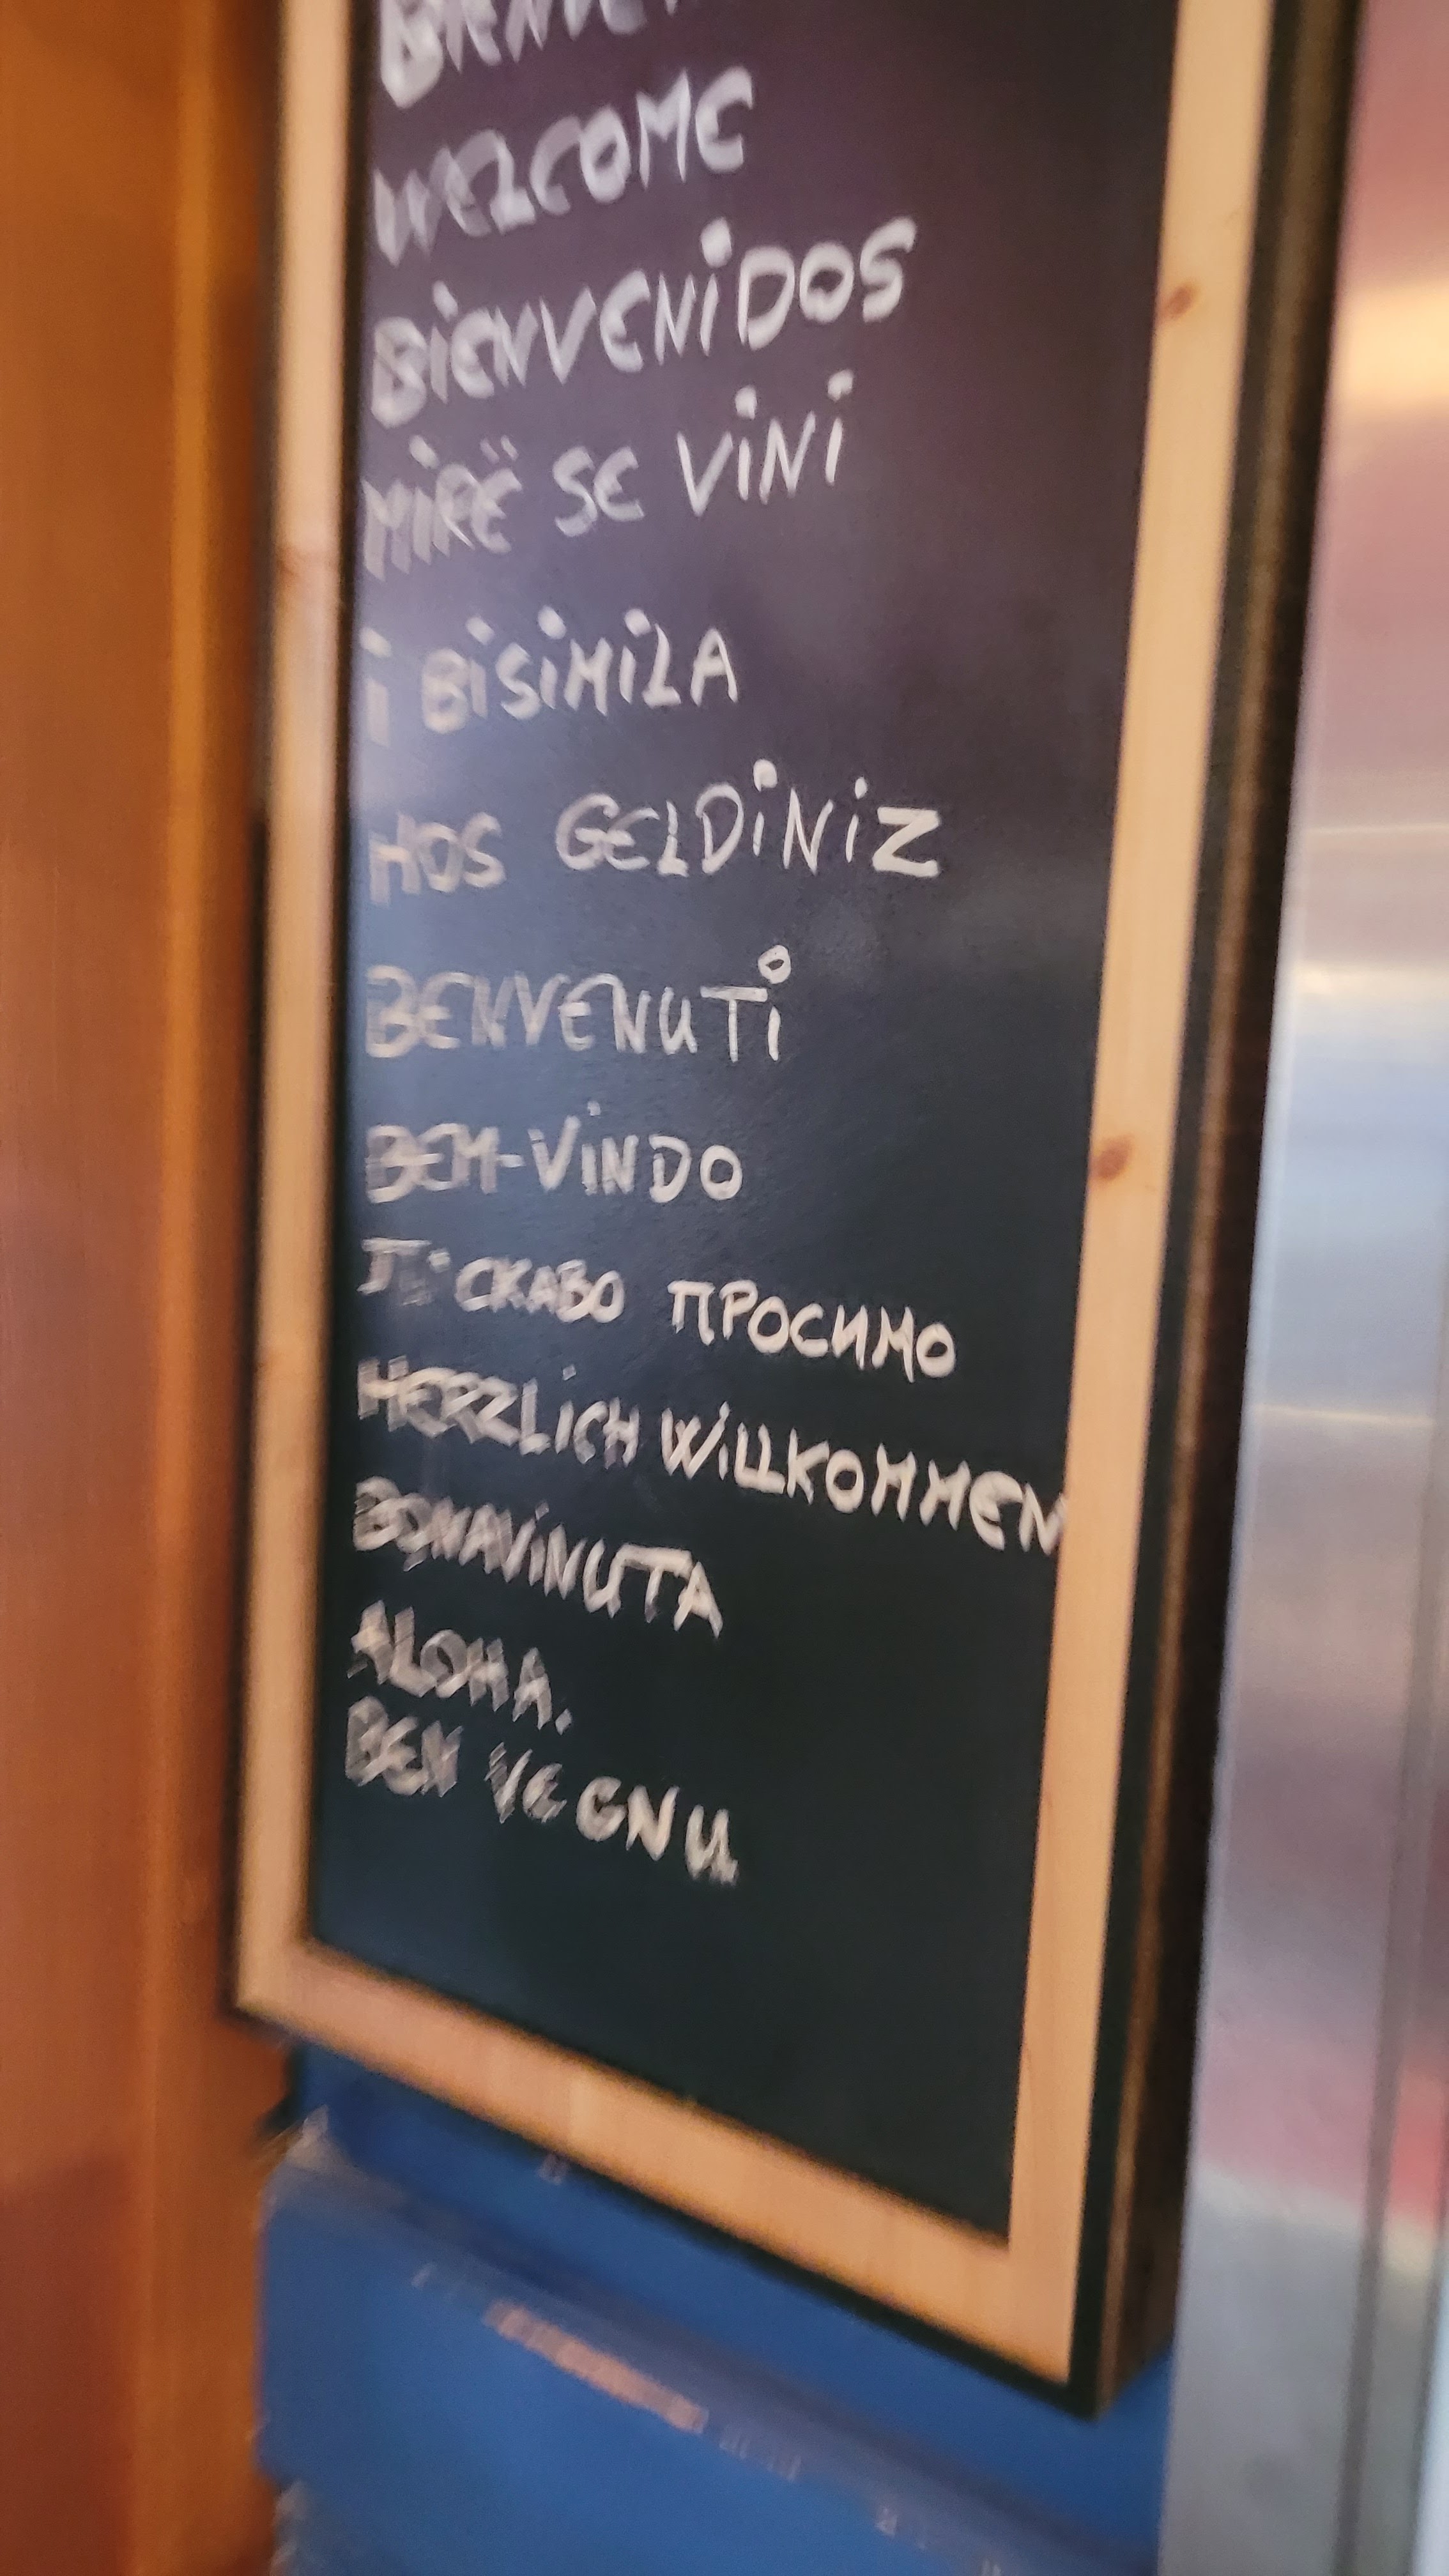 WELCOME
BIENVENIDOS
MIRË SE VINI
I BISIMILA
HOS GELDINIZ
BENVENUTI
BEM-VINDO
СКАВО ПРОСИМО
HERZLICH WILLKOMMEN
BONAVINUTA
ALOHA.
BEN VEGNU